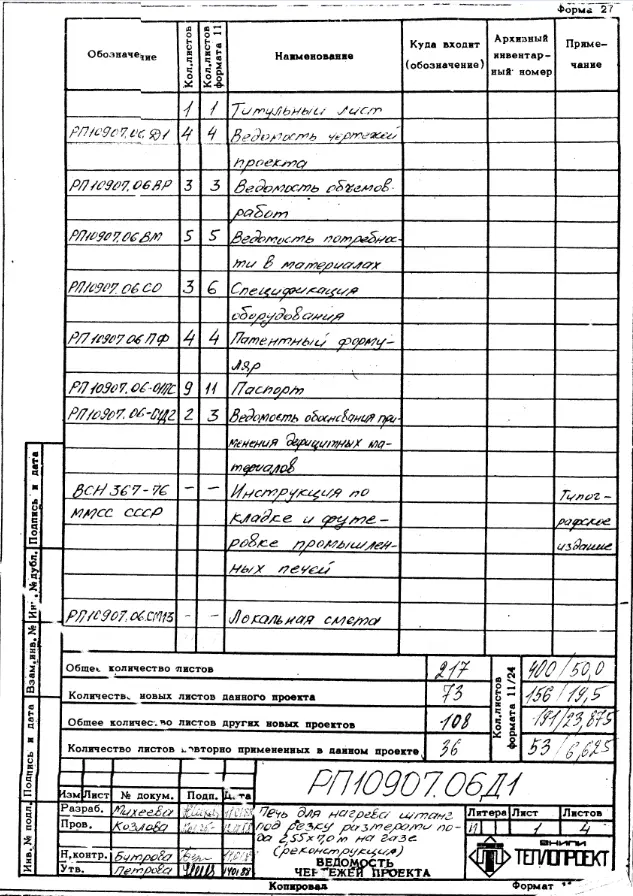 Форма 27
Обозначение
Кол.листов
Кол.листов формата 11
Наименование
Куда входит (обозначение)
Архивный инвентар- ный номер
Приме- чание
1 1 Титульный лист
РП10907.06.Д1 4 4 Ведомость чертежей
проекта
РП10907.06ВР 3 3 Ведомость объемов
работ
РП10907.06ВМ 5 5 Ведомость потребнос-
ти в материалах
РП10907.06СО 3 6 Спецификация
оборудования
РП10907.06ПФ 4 4 Патентный форму-
ляр
РП10907.06- 9 11 Паспорт
РП10907.06- 2 3 Ведомость обоснования при-
менения дефицитных ма-
териалов
ВСН 367-76 — — Инструкция по Типог-
ММСС СССР кладке и футе- рафское
ровке промышлен- издание
ных печей
РП10907.06.СМ13 - - Локальная смета
Общее количество листов 217
Количество новых листов данного проекта 73
Общее количество листов других новых проектов 108
Количество листов повторно примененных в данном проекте 36
Кол.листов формата 11/24
400/50,0
156/19,5
191/23,875
53/6,625
РП10907.06Д1
Изм Лист № докум. Подп. Дата
Разраб. Михеева
Пров. Козлова
Н,контр. Бутрова
Утв. Петрова
Печь для нагрева штанг
под резку размерами по-
да 2,55х7,0м на газе
(реконструкция)
ВЕДОМОСТЬ
ЧЕРТЕЖЕЙ ПРОЕКТА
Литера Лист Листов
И 1 4
ВНИПИ
ТЕПЛОПРОЕКТ
Копировал Формат
Инв.№ подл. Подпись и дата Взам.инв.№ Инв.№ дубл. Подпись и дата